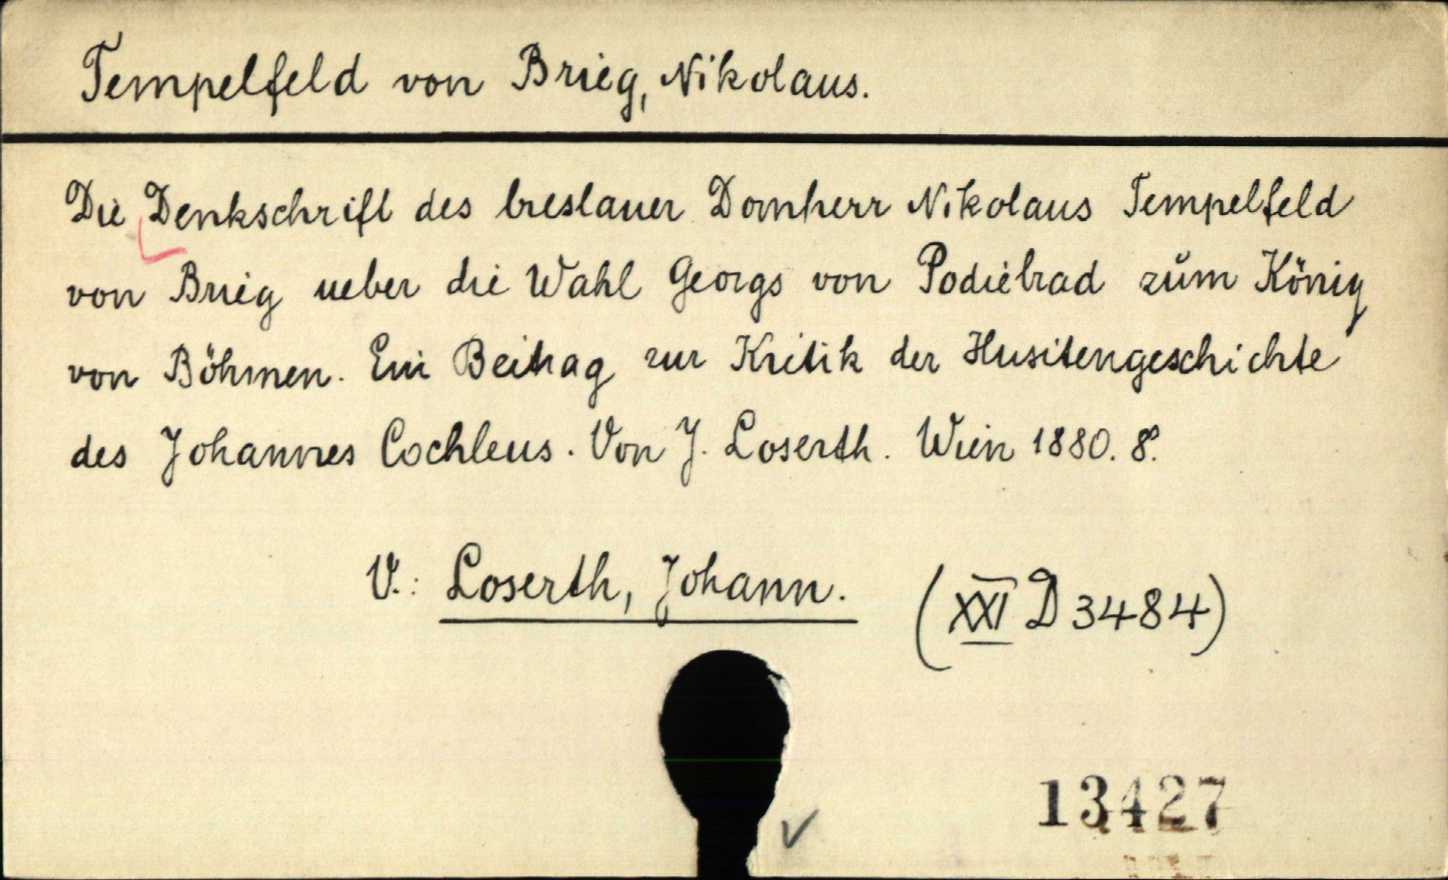 Tempelfeld von Brieg, Nikolaus.
Die Denkschrift des breslauer Domherr Nikolaus Tempelfeld
von Brieg ueber die Wahl Georgs von Podiebrad zum König
von Böhmen. Ein Beitrag zur Kritik der Husitengeschichte
des Johannes Cochleus. Von J. Loserth. Wien 1880. 8º.
V.: Loserth, Johann.
(XXI D 3484)
13427